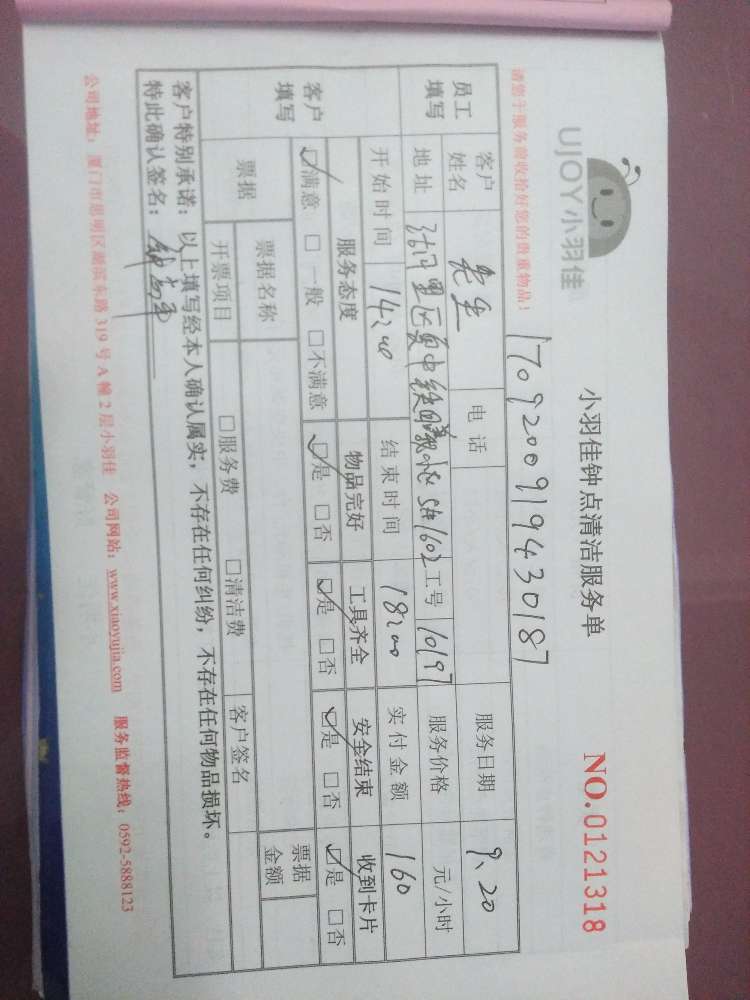 UJOY小羽佳
小羽佳钟点清洁服务单 NO.0121318
请您于服务前收拾好您的贵重物品！
1709200919430187
员工填写 客户姓名 先生 电话 服务日期 9、20
地址 中 小 1602 工号 10197 服务价格 元/小时
开始时间 14:00 结束时间 18:00 实付金额 160
客户填写 服务态度 物品完好 工具齐全 安全结束 收到卡片
☑满意 □一般 □不满意 ☑是 □否 ☑是 □否 ☑是 □否 ☑是 □否
票据 票据名称 票据金额
开票项目 □服务费 □清洁费 客户签名
客户特别承诺：以上填写经本人确认属实，不存在任何纠纷，不存在任何物品损坏。
特此确认签名：
公司地址：厦门市思明区湖滨东路319号A幢2层小羽佳 公司网站：www.xiaoyujia.com 服务监督热线：0592-5888123